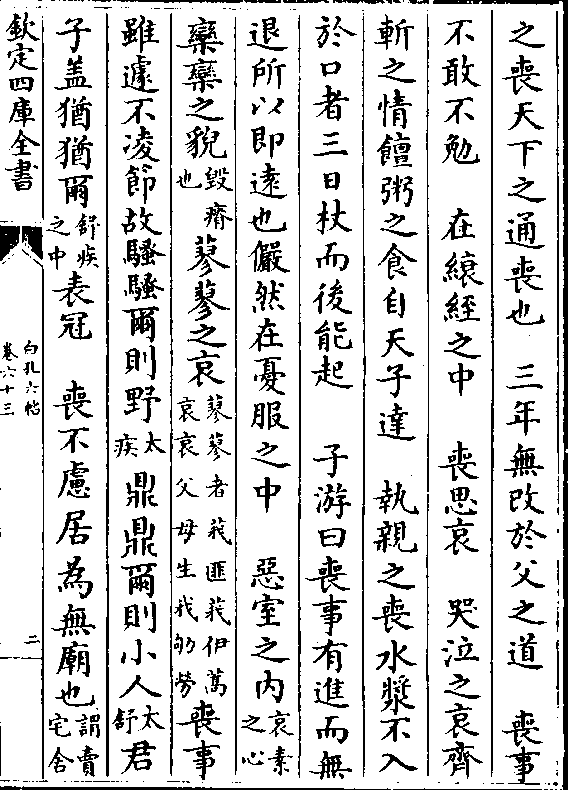 之喪天下之通喪也　三年無改於父之道　喪事
不敢不勉　在縗絰之中　喪思哀　哭泣之哀齊
斬之情饘粥之食自天子達　執親之喪水漿不入
於口者三日杖而後能起　子游曰喪事有進而無
退所以即遠也儼然在憂服之中　惡室之内哀素之心
欒欒之貌毀瘠也蓼蓼之哀蓼蓼者莪匪莪伊蒿哀哀父母生我劬勞喪事
雖遽不凌節故騷騷爾則野太疾鼎鼎爾則小人太舒君
子盖猶猶爾舒疾之中表冠　喪不慮居為無廟也謂賣宅舍
欽定四庫全書
白孔六帖
卷六十三
二